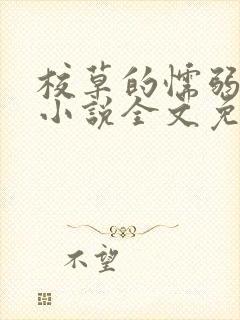 校草的懦弱
小说全文免
不望